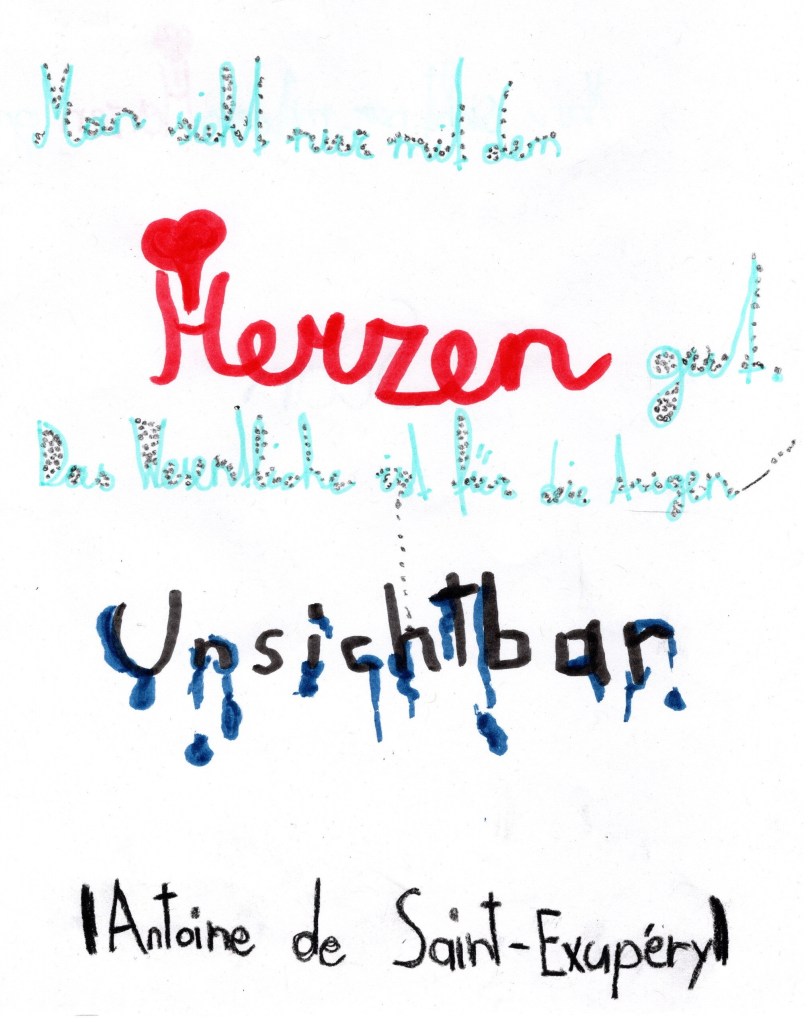 Man sieht nur mit dem
Herzen gut.
Das Wesentliche ist für die Augen
Unsichtbar
|Antoine de Saint-Exupéry|